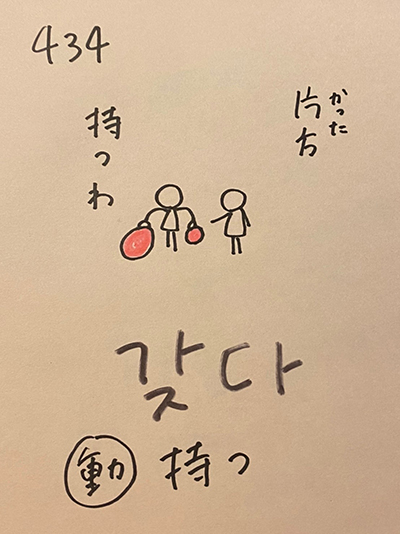 434
かった
片方
持つわ
갖다
動 持つ